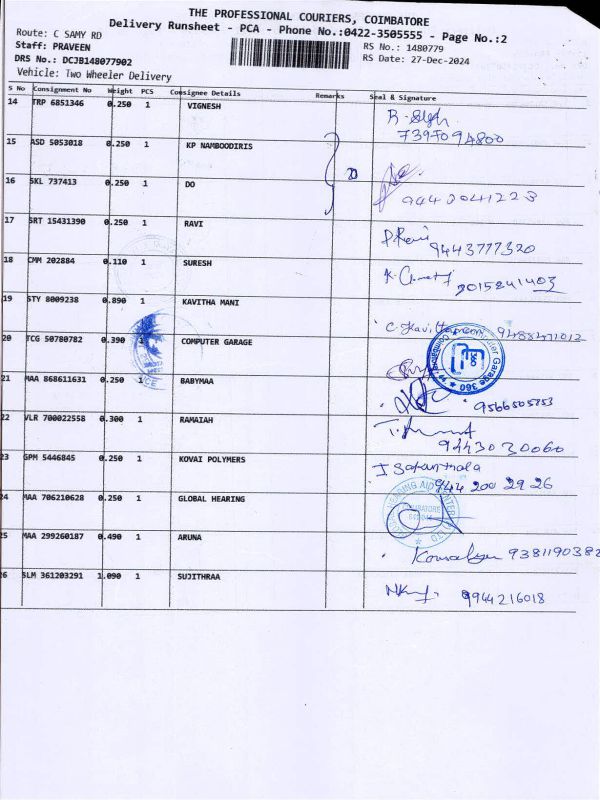 THE PROFESSIONAL COURIERS, COIMBATORE
Delivery Runsheet - PCA - Phone No.:0422-3505555 - Page No.:2
Route: C SAMY RD
Staff: PRAVEEN
RS No.: 1480779
DRS No.: DCJB148077902
RS Date: 27-Dec-2024
Vehicle: Two Wheeler Delivery
S No Consignment No Weight PCS Consignee Details Remarks Seal & Signature
14 TRP 6851346 0.250 1 VIGNESH
7397094800
15 ASD 5053018 0.250 1 KP NAMBOODIRIS
16 SKL 737413 0.250 1 DO
9442041223
17 SRT 15431390 0.250 1 RAVI
P.Ravi 9443777320
18 CMM 202884 0.110 1 SURESH
9015241403
19 STY 8009238 0.890 1 KAVITHA MANI
C. Kavithamani 9488471012
20 TCG 50780782 0.390 1 COMPUTER GARAGE
Computer Garage 360
21 MAA 868611631 0.250 1 BABYMAA
9566505853
22 VLR 700022558 0.300 1 RAMAIAH
9443030060
23 GPM 5446845 0.250 1 KOVAI POLYMERS
944 200 29 26
24 MAA 706210628 0.250 1 GLOBAL HEARING
HEARING AID CENTER
COIMBATORE
25 MAA 299260187 0.490 1 ARUNA
9381190382
26 SLM 361203291 1.090 1 SUJITHRAA
9944216018